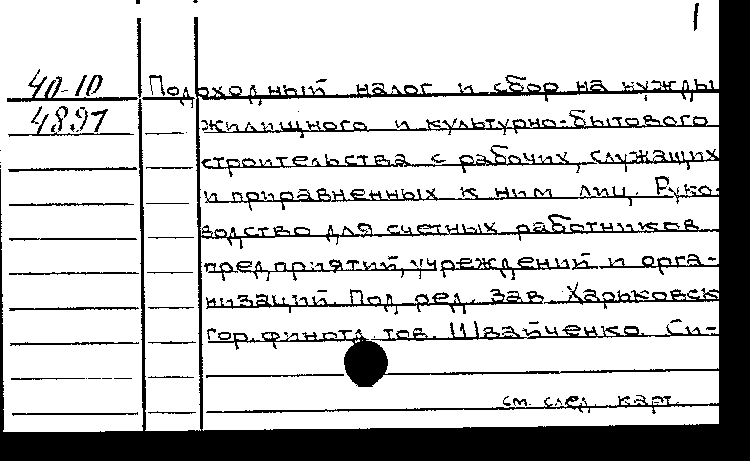 1
40-10 Подоходный налог и сбор на нужды
4897 жилищного и культурно-бытового
строительства с рабочих, служащих
и приравненных к ним лиц. Руко-
водство для счетных работников
предприятий, учреждений и орга-
низаций. Под ред. зав. Харьковск
гор. финотд. тов. Швайченко. Си-
см. след. карт.